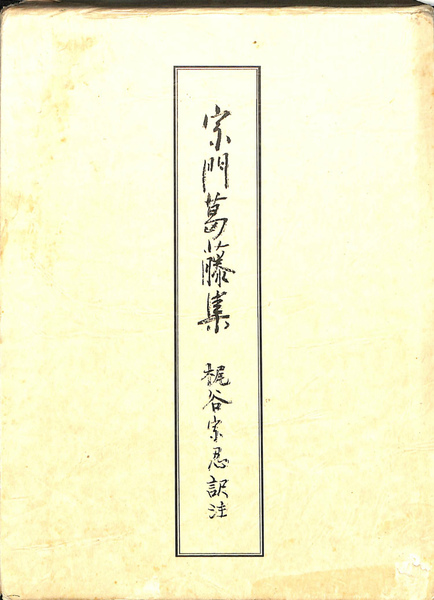 宗門葛藤集
梶谷宗忍訳注